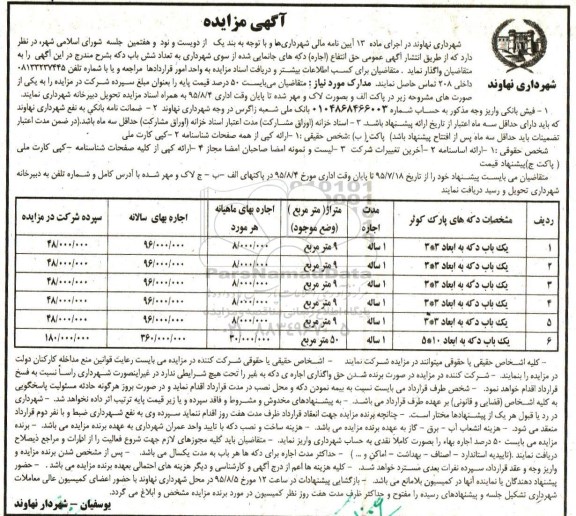 آگهی مزایده
شهرداری نهاوند
شهرداری نهاوند در اجرای ماده ۱۳ آیین نامه مالی شهرداری‌ها و با توجه به بند یک از دویست و نود و هفتمین جلسه شورای اسلامی شهر، در نظر
دارد که از طریق انتشار آگهی عمومی حق انتفاع (اجاره) دکه های جانمایی شده از سوی شهرداری به تعداد شش باب دکه بشرح مندرج در این آگهی را به
متقاضیان واگذار نماید . متقاضیان برای کسب اطلاعات بیشتر و دریافت اسناد مزایده به واحد امور قراردادها مراجعه و یا با شماره تلفن ۰۸۱۳۳۲۳۷۴۴۵
داخلی ۲۰۸ تماس حاصل نمایند. مدارک مورد نیاز : متقاضیان می‌بایست ۵۰ درصد قیمت پایه را بعنوان مبلغ سپرده شرکت در مزایده را به یکی از
صورت های مشروحه زیر در پاکت الف و بصورت لاک و مهر شده تا پایان وقت اداری ۹۵/۸/۴ به همراه اسناد مزایده تحویل دبیرخانه شهرداری نمایند.
۱ - فیش بانکی واریز وجه مذکور به حساب شماره ۰۱۰۴۸۶۸۴۶۶۰۰۳ بانک ملی شعبه زاگرس در وجه شهرداری نهاوند ۲ - ضمانت نامه بانکی به نفع شهرداری نهاوند
که باید دارای حداقل سه ماه اعتبار از تاریخ ارائه پیشنهاد باشد. ۳ - اسناد خزانه (اوراق مشارکت) مدت اعتبار اسناد خزانه (اوراق مشارکت) حداقل سه ماه باشد.(در ضمن مدت اعتبار
تضمینات باید حداقل سه ماه پس از افتتاح پیشنهاد باشد) پاکت( ب) :شخص حقیقی :۱ -ارائه کپی از همه صفحات شناسنامه ۲ -کپی کارت ملی
شخص حقوقی :۱ -ارائه اساسنامه ۲ -آخرین تغییرات شرکت ۳ -لیست و نمونه امضا صاحبان امضا مجاز ۴ -ارائه کپی از کلیه صفحات شناسنامه -کپی کارت ملی
( پاکت ج)پیشنهاد قیمت
متقاضیان می بایست پیشنهاد خود را از تاریخ ۹۵/۷/۱۸ تا پایان وقت اداری مورخ ۹۵/۸/۴ در پاکتهای الف -ب - ج لاک و مهر شده با آدرس کامل و شماره تلفن به دبیرخانه
شهرداری تحویل و رسید دریافت نمایند
ردیف مشخصات دکه های پارک کوثر مدت اجاره متراژ( متر مربع ) (وضع موجود) اجاره بهای ماهیانه هر مورد اجاره بهای سالانه سپرده شرکت در مزایده
۱ یک باب دکه به ابعاد ۳*۳ ۱ ساله ۹ متر مربع ۸/۰۰۰/۰۰۰ ۹۶/۰۰۰/۰۰۰ ۴۸/۰۰۰/۰۰۰
۲ یک باب دکه به ابعاد ۳*۳ ۱ ساله ۹ متر مربع ۸/۰۰۰/۰۰۰ ۹۶/۰۰۰/۰۰۰ ۴۸/۰۰۰/۰۰۰
۳ یک باب دکه به ابعاد ۳*۳ ۱ ساله ۹ متر مربع ۸/۰۰۰/۰۰۰ ۹۶/۰۰۰/۰۰۰ ۴۸/۰۰۰/۰۰۰
۴ یک باب دکه به ابعاد ۳*۳ ۱ ساله ۹ متر مربع ۸/۰۰۰/۰۰۰ ۹۶/۰۰۰/۰۰۰ ۴۸/۰۰۰/۰۰۰
۵ یک باب دکه به ابعاد ۳*۳ ۱ ساله ۹ متر مربع ۸/۰۰۰/۰۰۰ ۹۶/۰۰۰/۰۰۰ ۴۸/۰۰۰/۰۰۰
۶ یک باب دکه به ابعاد ۱۰*۵ ۱ ساله ۵۰ متر مربع ۳۰/۰۰۰/۰۰۰ ۳۶۰/۰۰۰/۰۰۰ ۱۸۰/۰۰۰/۰۰۰
- کلیه اشخاص حقیقی یا حقوقی میتوانند در مزایده شرکت نمایند - اشخاص حقیقی یا حقوقی شرکت کننده در مزایده می بایست رعایت قوانین منع مداخله کارکنان دولت
در مزایده را بنمایند. - شرکت کننده در مزایده در صورت برنده شدن حق واگذاری اجاره ی دکه به غیر را تحت هیچ شرایطی ندارد در غیراینصورت شهرداری رأساً نسبت به فسخ
قرارداد اقدام خواهد نمود. - شخص طرف قرارداد می بایست نسبت به بیمه نمودن دکه و محل نصب در مدت قرارداد اقدام نماید و در صورت بروز هرگونه حادثه مسئولیت پاسخگویی
به کلیه اشخاص (قضایی و قانونی) بر عهده طرف قرارداد می باشد. - به پیشنهادهای مخدوش و مشروط و فاقد سپرده و یا زیر قیمت پایه ترتیب اثر داده نخواهد شد. - شهرداری
در رد یا قبول هر یک از پیشنهادها مختار است. - چنانچه برنده مزایده جهت انعقاد قرارداد ظرف مدت هفت روز اقدام ننماید سپرده وی به نفع شهرداری ضبط و با نفر دوم قرارداد
منعقد می شود. - هزینه انشعاب آب - برق - گاز به عهده برنده مزایده می باشد. - هزینه ساخت و نصب دکه با تایید واحد عمران شهرداری به عهده برنده مزایده می باشد. - برنده
مزایده می بایست ۵۰ درصد اجاره بهاء را بصورت کاملا نقدی به حساب شهرداری واریز نماید. - متقاضیان باید کلیه مجوزهای لازم جهت شروع فعالیت را از ادارات و مراجع ذیصلاح
دریافت نمایند.(تاییدیه استاندارد - اصناف - بهداشت - اماکن و ... ) - حداکثر مدت اجاره برای دکه ها هر باب به مدت یکسال می باشد. - پس از مشخص شدن برنده مزایده و
واریز وجه و عقد قرارداد، سپرده نفرات بعدی مسترد خواهد شد. - کلیه هزینه ها اعم از درج آگهی و کارشناسی و دیگر هزینه های احتمالی بعهده برنده مزایده می باشد. - حضور
پیشنهاد دهندگان یا نماینده آنها در کمیسیون بلامانع می باشد. - بازگشایی پیشنهادات در ساعت ۱۲ مورخ ۹۵/۸/۵ در محل شهرداری نهاوند با حضور اعضای کمیسیون عالی معاملات
شهرداری تشکیل جلسه و پیشنهادهای رسیده را مفتوح و حداکثر ظرف مدت هفت روز نظر کمیسیون در مورد برنده مزایده مشخص و ابلاغ می گردد.
یوسفیان - شهردار نهاوند